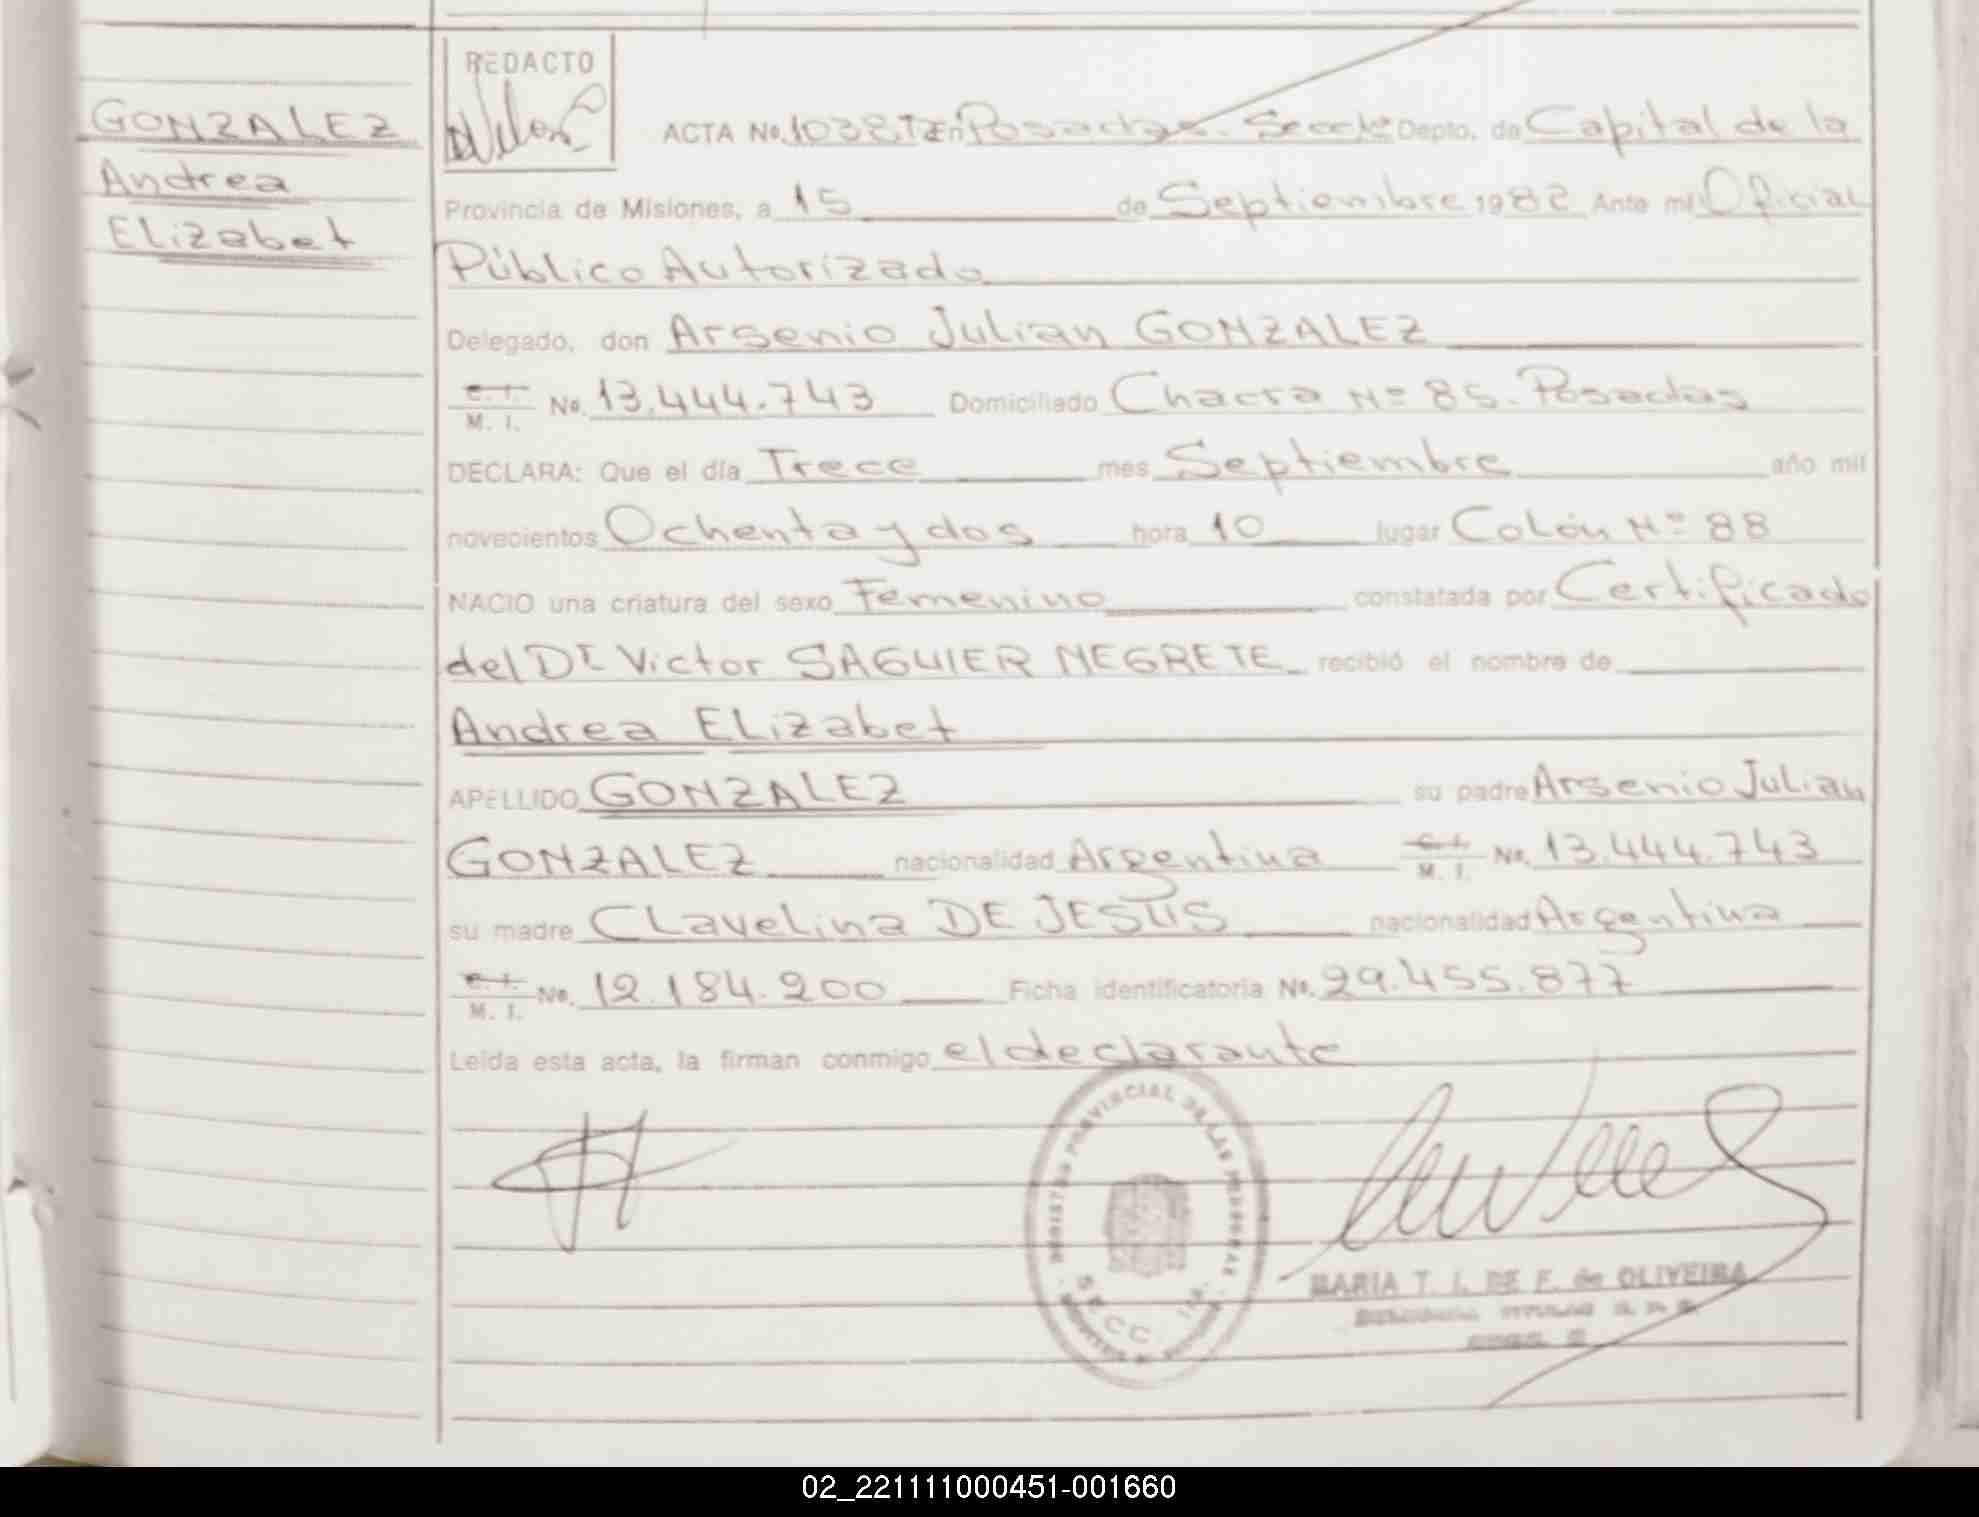 REDACTO
GONZALEZ
Andrea
Elizabet
ACTA No. En Posadas. Depto. de Capital de la
Provincia de Misiones, a 15 de Septiembre 1982 Ante mi Oficial
Público Autorizado
Delegado, don Arsenio Julian GONZALEZ
C. I. M. I. No. 13.444.743 Domiciliado Chacra Nº 85. Posadas
DECLARA: Que el día Trece mes Septiembre año mil
novecientos Ochenta y dos hora 10 lugar Colón Nº 88
NACIO una criatura del sexo Femenino constatada por Certificado
del Dr Victor SAGUIER NEGRETE recibió el nombre de
Andrea Elizabet
APELLIDO GONZALEZ su padre Arsenio Julian
GONZALEZ nacionalidad Argentina C. I. M. I. No. 13.444.743
su madre Clavelina DE JESUS nacionalidad Argentina
C. I. M. I. No. 12.184.200 Ficha identificatoria No. 29.455.877
Leída esta acta, la firman conmigo el declarante
REGISTRO PROVINCIAL DE LAS PERSONAS
SECC.
MARIA T. I. DE F. de OLIVEIRA
02_221111000451-001660